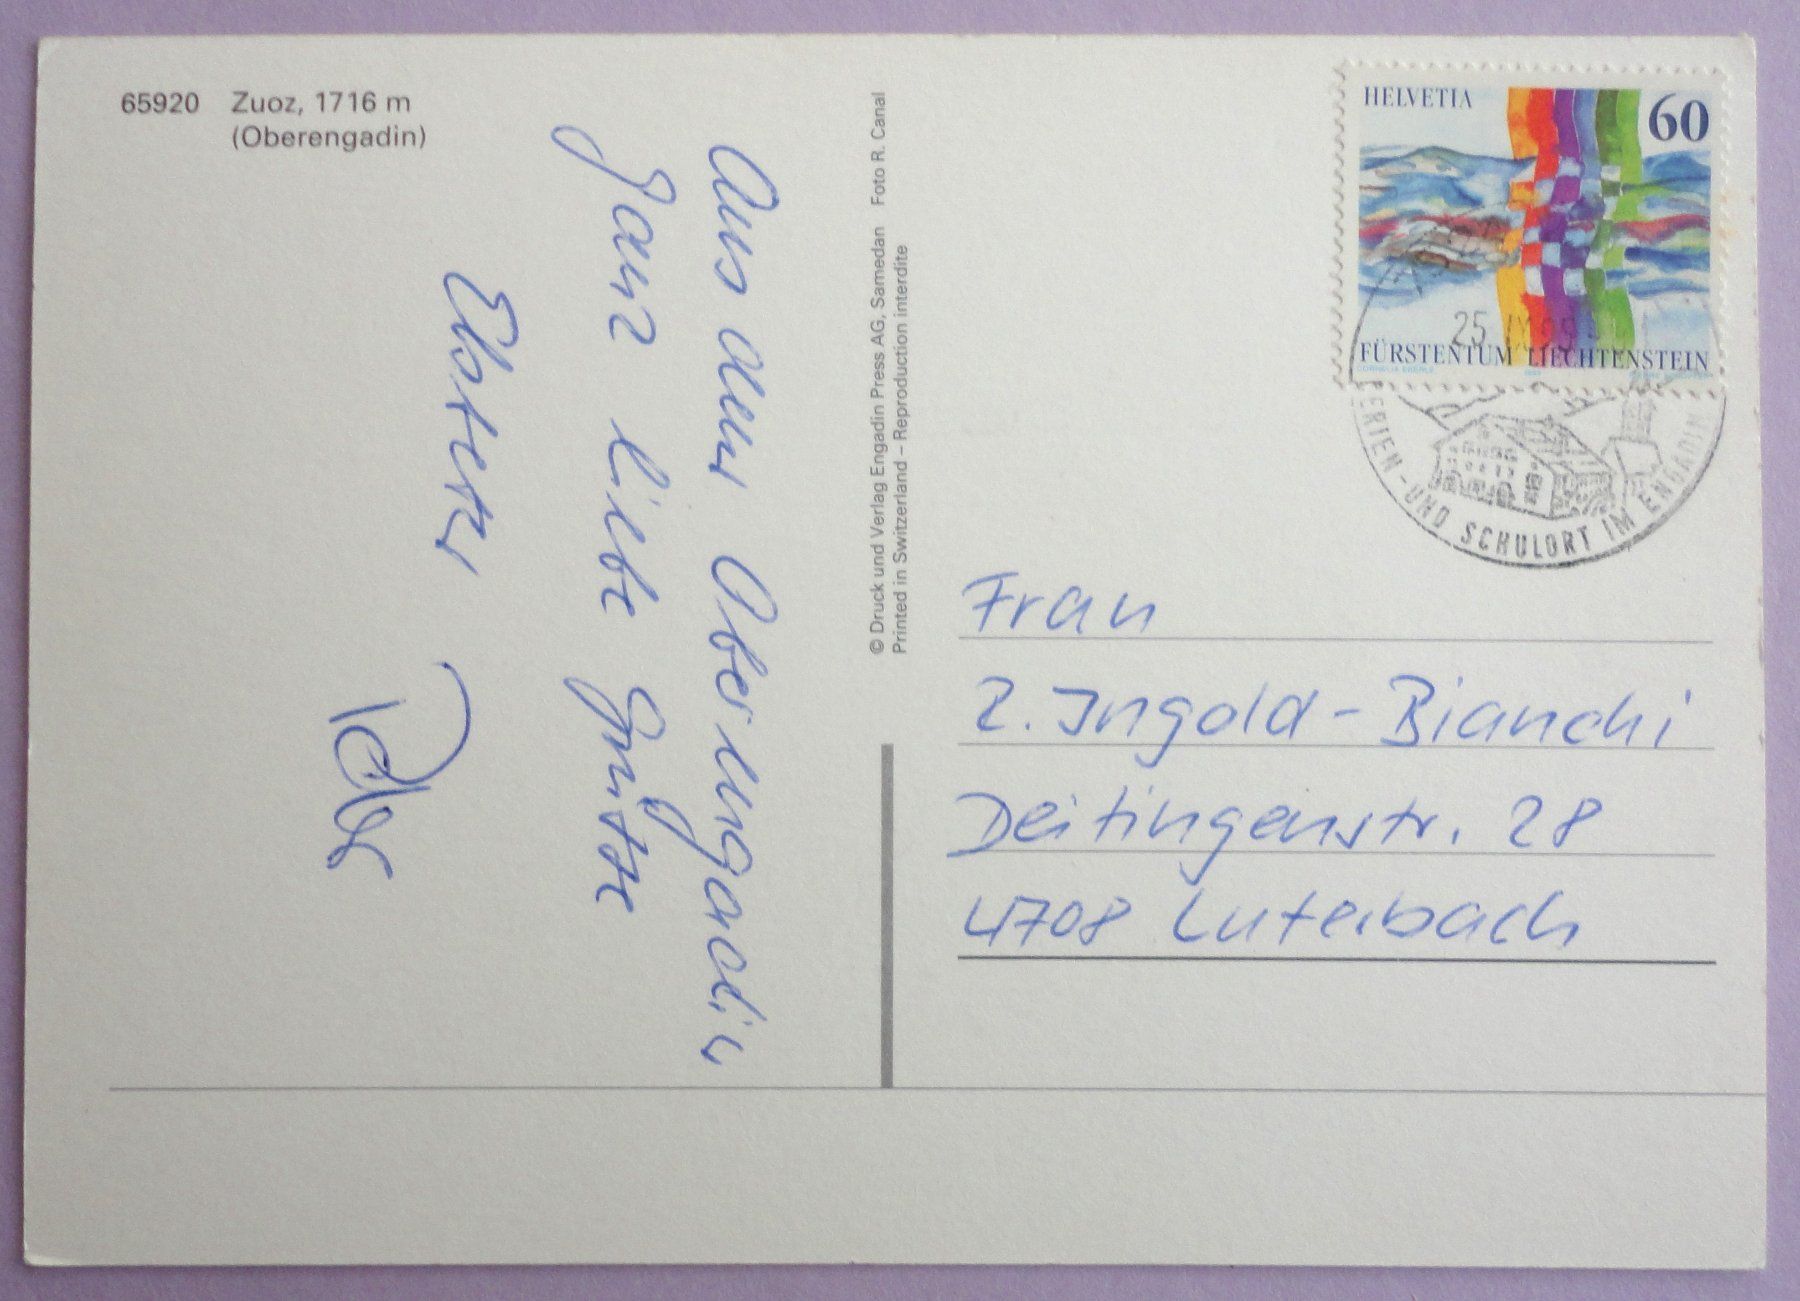 65920 Zuoz, 1716 m
(Oberengadin)
Aus dem Oberengadin
ganz liebe Grüsse
© Druck und Verlag Engadin Press AG, Samedan Foto R. Canal
Printed in Switzerland – Reproduction interdite
HELVETIA 60
FÜRSTENTUM LIECHTENSTEIN
CORNELIA EBERLE
25. IX 95
FERIEN-UND SCHULORT IM ENGADIN
Frau
Z. Ingold-Bianchi
Deitingenstr. 28
4708 Luterbach